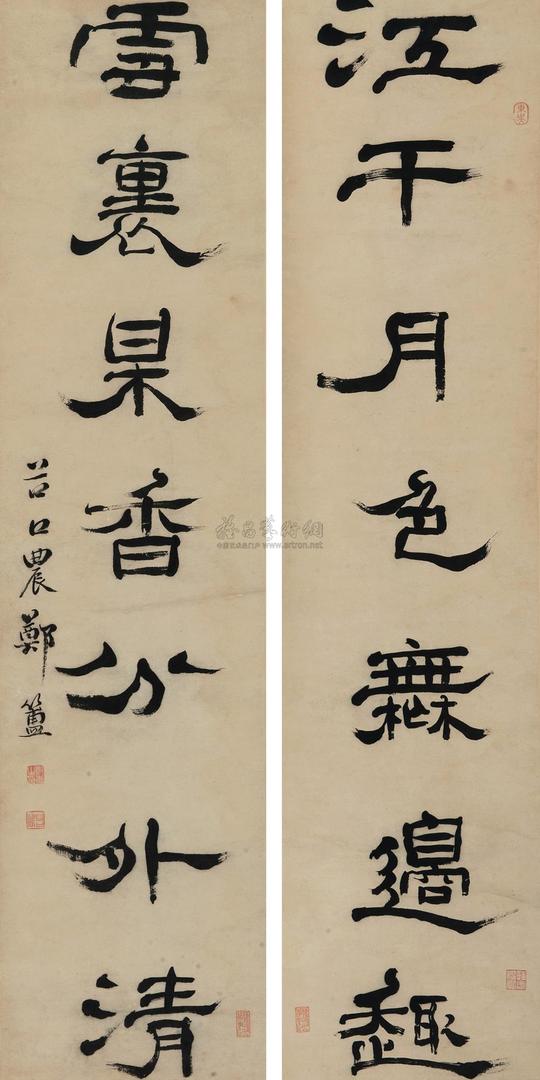 江干月色無邊趣
雪裏杲香分外清
谷口農鄭簠
雅昌藝術網
www.artron.net